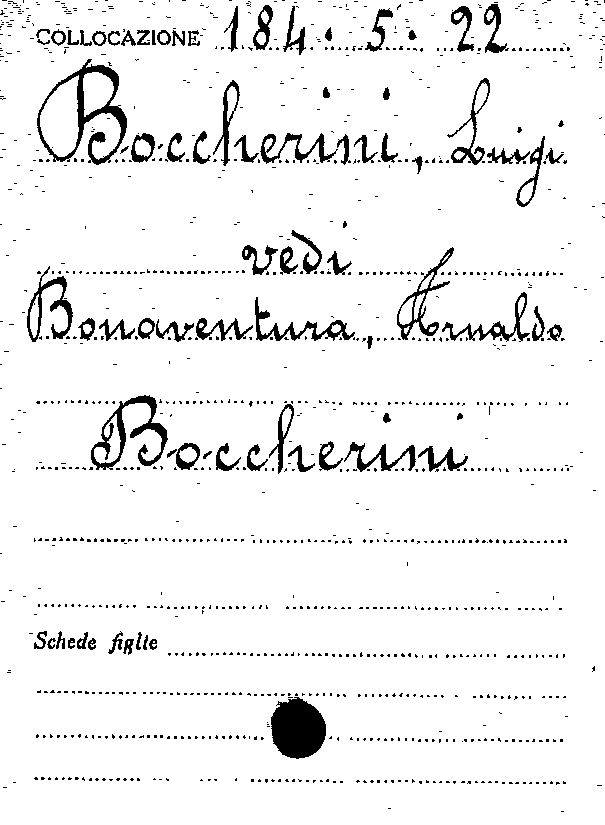 COLLOCAZIONE 184. 5. 22
Boccherini, Luigi
vedi
Bonaventura, Arnaldo
Boccherini
Schede figlie